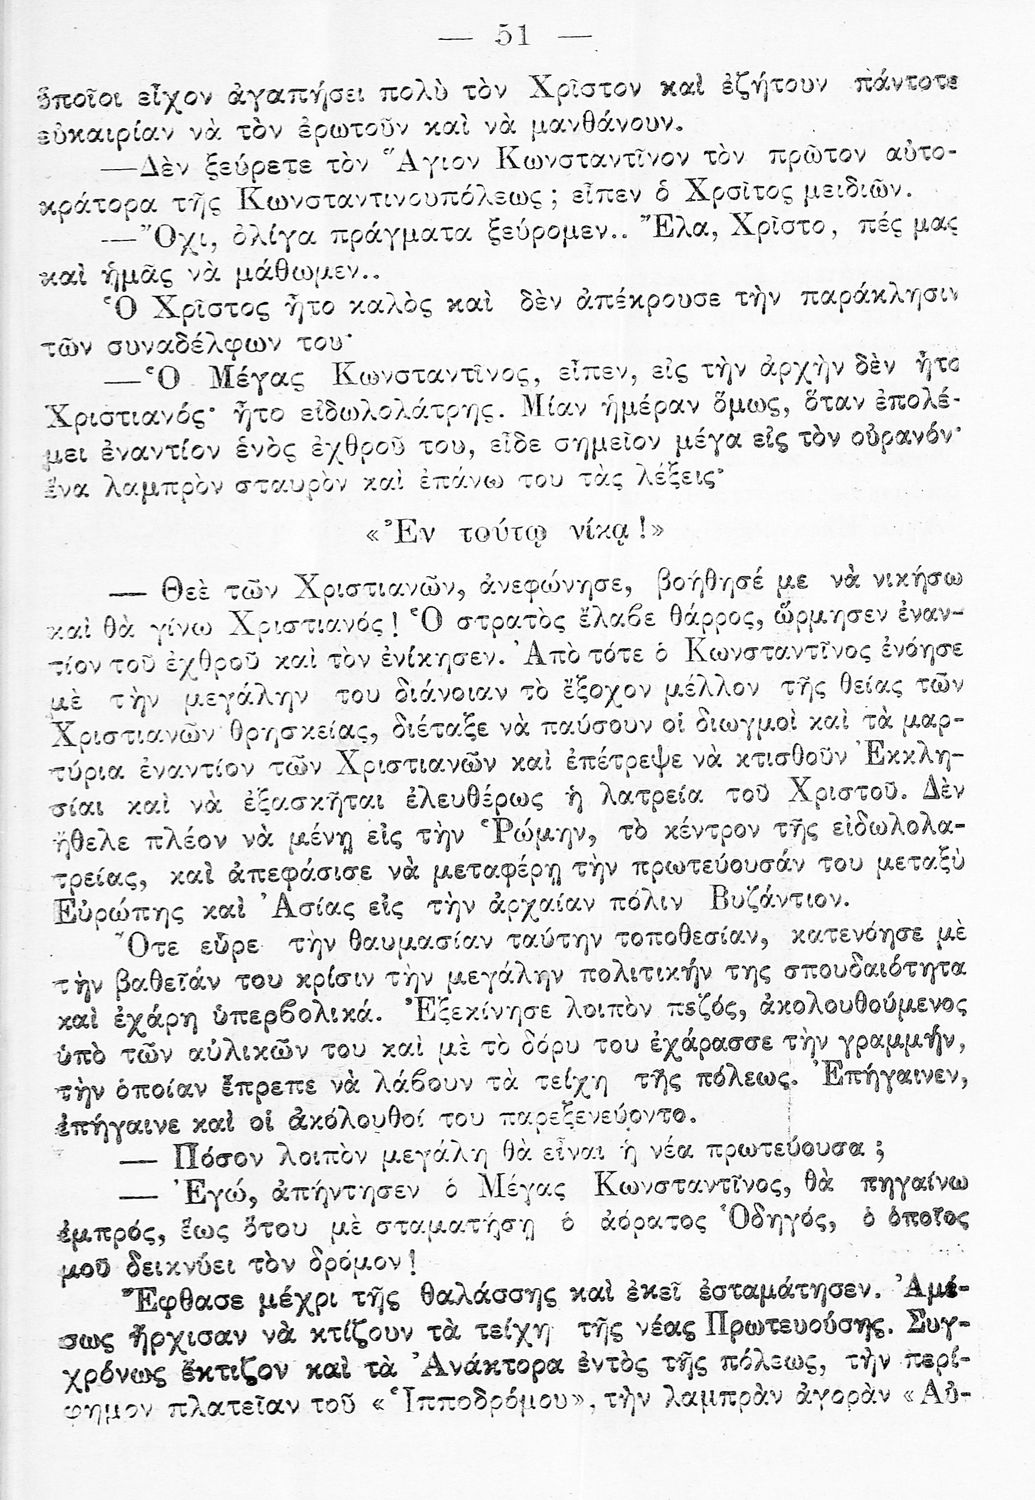 — 51 —
ὁποῖοι εἶχον ἀγαπήσει πολὺ τὸν Χρῖστον καὶ ἐζήτουν πάντοτε
εὐκαιρίαν νὰ τὸν ἐρωτοῦν καὶ νὰ μανθάνουν.
—Δὲν ξεύρετε τὸν Ἅγιον Κωνσταντῖνον τὸν πρῶτον αὐτο-
κράτορα τῆς Κωνσταντινουπόλεως ; εἶπεν ὁ Χρσῖτος μειδιῶν.
—Ὄχι, ὀλίγα πράγματα ξεύρομεν.. Ἔλα, Χρῖστο, πές μας
καὶ ἡμᾶς νὰ μάθωμεν..
Ὁ Χρῖστος ἦτο καλὸς καὶ δὲν ἀπέκρουσε τὴν παράκλησιν
τῶν συναδέλφων του·
—Ὁ Μέγας Κωνσταντῖνος, εἶπεν, εἰς τὴν ἀρχὴν δὲν ἦτο
Χριστιανός· ἦτο εἰδωλολάτρης. Μίαν ἡμέραν ὅμως, ὅταν ἐπολέ-
μει ἐναντίον ἑνὸς ἐχθροῦ του, εἶδε σημεῖον μέγα εἰς τὸν οὐρανόν·
ἕνα λαμπρὸν σταυρὸν καὶ ἐπάνω του τὰς λέξεις·
«Ἐν τούτῳ νίκᾳ !»
— Θεὲ τῶν Χριστιανῶν, ἀνεφώνησε, βοήθησέ με νὰ νικήσω
καὶ θὰ γίνω Χριστιανός ! Ὁ στρατὸς ἔλαβε θάρρος, ὥρμησεν ἐναν-
τίον τοῦ ἐχθροῦ καὶ τὸν ἐνίκησεν. Ἀπὸ τότε ὁ Κωνσταντῖνος ἐνόησε
μὲ τὴν μεγάλην του διάνοιαν τὸ ἔξοχον μέλλον τῆς θείας τῶν
Χριστιανῶν θρησκείας, διέταξε νὰ παύσουν οἱ διωγμοὶ καὶ τὰ μαρ-
τύρια ἐναντίον τῶν Χριστιανῶν καὶ ἐπέτρεψε νὰ κτισθοῦν Ἐκκλη-
σίαι καὶ νὰ ἐξασκῆται ἐλευθέρως ἡ λατρεία τοῦ Χριστοῦ. Δὲν
ἤθελε πλέον νὰ μένῃ εἰς τὴν Ῥώμην, τὸ κέντρον τῆς εἰδωλολα-
τρείας, καὶ ἀπεφάσισε νὰ μεταφέρῃ τὴν πρωτεύουσάν του μεταξὺ
Εὐρώπης καὶ Ἀσίας εἰς τὴν ἀρχαίαν πόλιν Βυζάντιον.
Ὅτε εὗρε τὴν θαυμασίαν ταύτην τοποθεσίαν, κατενόησε μὲ
τὴν βαθεῖάν του κρίσιν τὴν μεγάλην πολιτικήν της σπουδαιότητα
καὶ ἐχάρη ὑπερβολικά. Ἐξεκίνησε λοιπὸν πεζός, ἀκολουθούμενος
ὑπὸ τῶν αὐλικῶν του καὶ μὲ τὸ δόρυ του ἐχάρασσε τὴν γραμμήν,
τὴν ὁποίαν ἔπρεπε νὰ λάβουν τὰ τείχη τῆς πόλεως. Ἐπήγαινεν,
ἐπήγαινε καὶ οἱ ἀκόλουθοί του παρεξενεύοντο.
— Πόσον λοιπὸν μεγάλη θὰ εἶναι ἡ νέα πρωτεύουσα ;
— Ἐγώ, ἀπήντησεν ὁ Μέγας Κωνσταντῖνος, θὰ πηγαίνω
ἐμπρός, ἕως ὅτου μὲ σταματήσῃ ὁ ἀόρατος Ὁδηγός, ὁ ὁποῖος
μοῦ δεικνύει τὸν δρόμον !
Ἔφθασε μέχρι τῆς θαλάσσης καὶ ἐκεῖ ἐσταμάτησεν. Ἀμέ-
σως ἤρχισαν νὰ κτίζουν τὰ τείχη τῆς νέας Πρωτευούσης. Συγ-
χρόνως ἔκτιζον καὶ τὰ Ἀνάκτορα ἐντὸς τῆς πόλεως, τὴν περί-
φημον πλατεῖαν τοῦ «Ἱπποδρόμου», τὴν λαμπρὰν ἀγορὰν «Αὐ-